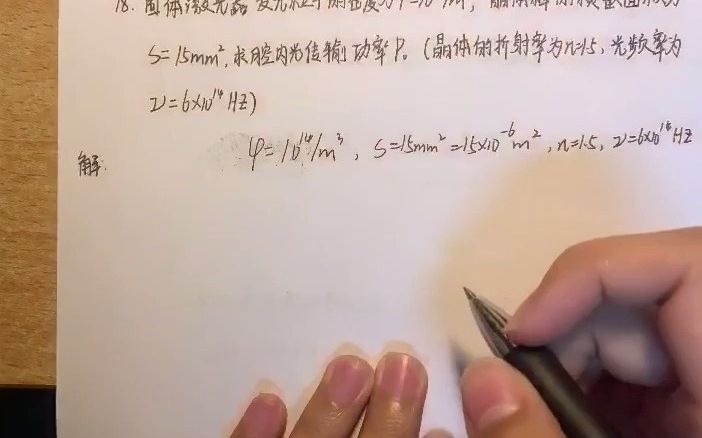 18. 固体激光器发光粒子的密度为φ=10¹⁴/m³,晶体棒的横截面积为
S=15mm², 求腔内光传输功率P。(晶体的折射率为n=1.5, 光频率为
ν=6×10¹⁴Hz)
解: φ=10¹⁴/m³, S=15mm²=15×10⁻⁶m², n=1.5, ν=6×10¹⁴Hz